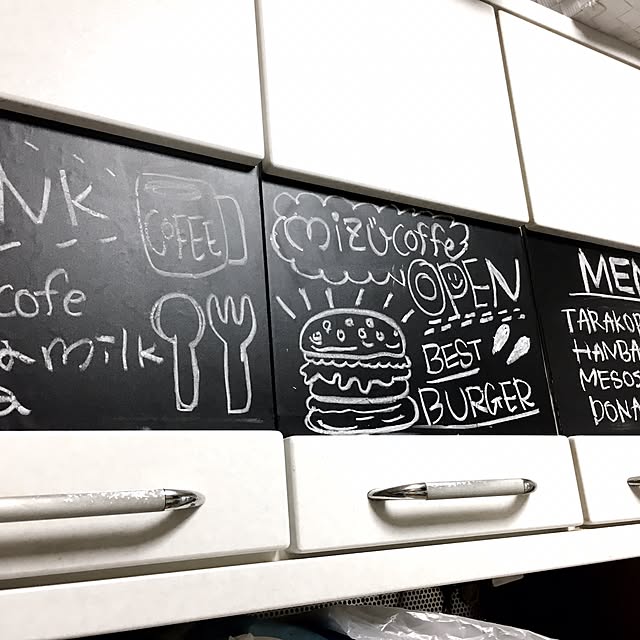 NK
COFEE
cofe
milk
a
mizu coffe
OPEN
BEST
BURGER
MEN
TARAKO
HANBA
MESOS
DONA